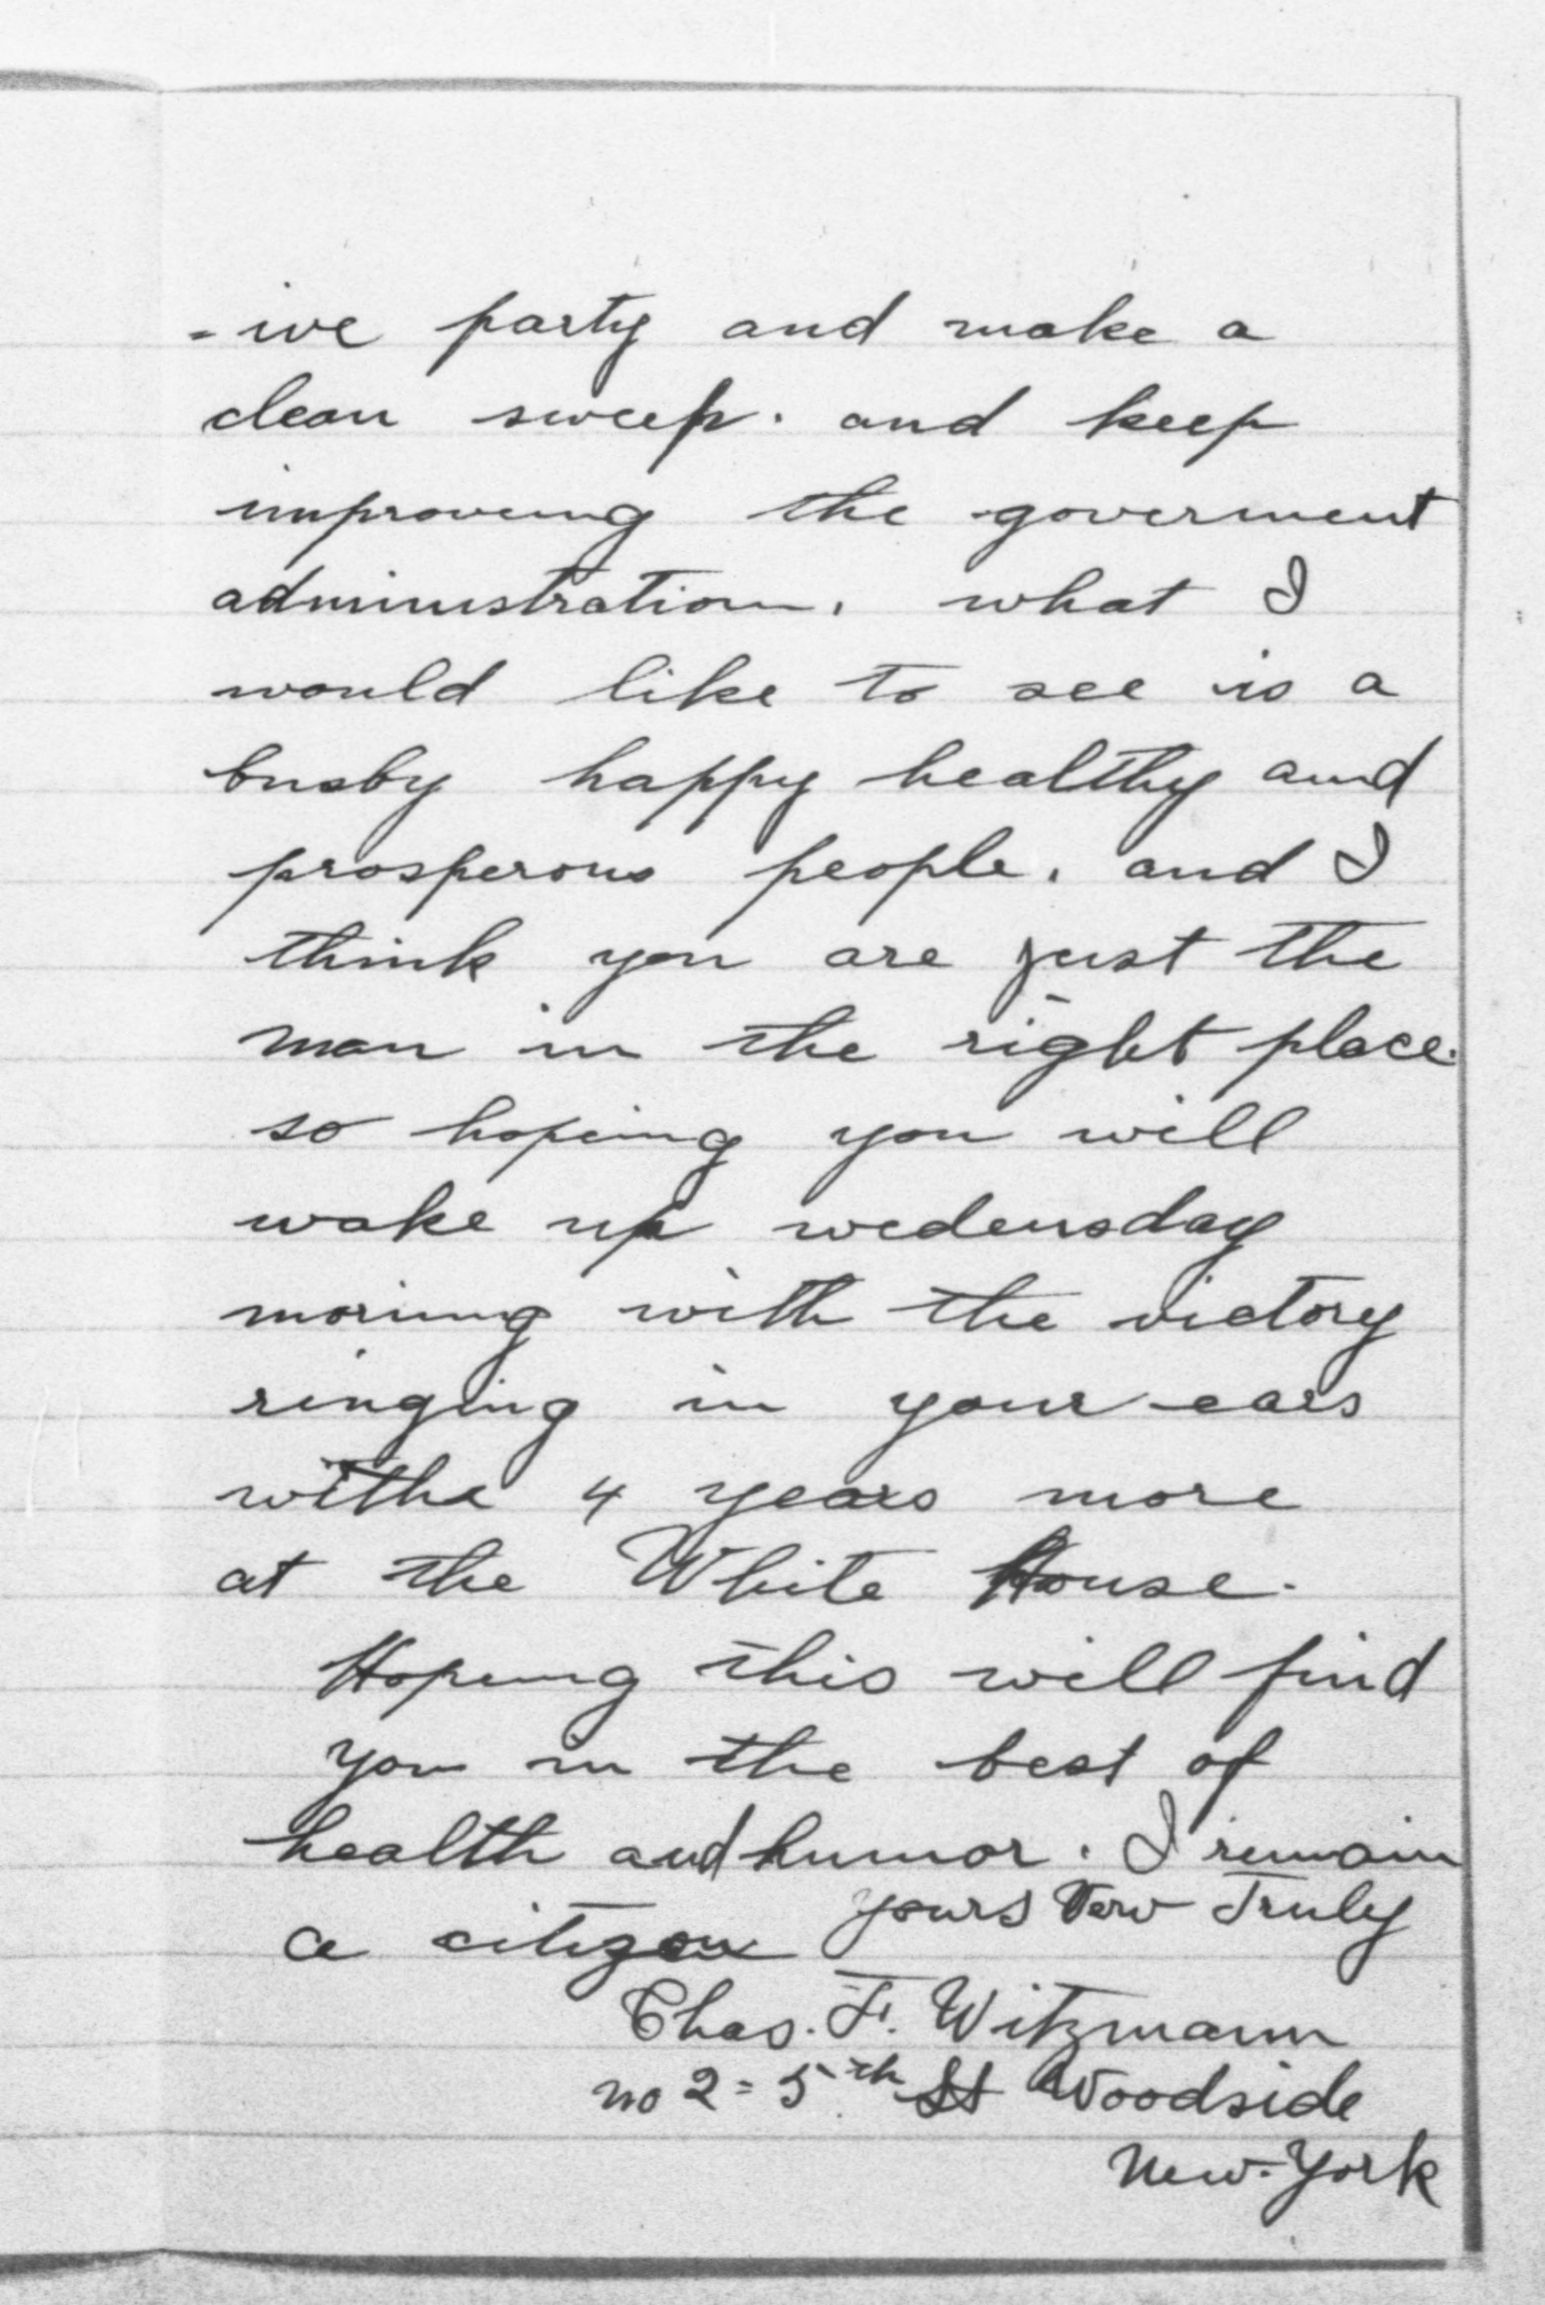 -ive party and make a
clean sweep. and keep
improveing the goverment
administration. what I
would like to see is a
busby happy healthy and
prosperous people. and I
think you are just the
man in the right place.
so hopeing you will
wake up wedensday
morning with the victory
ringing in your ears
withe 4 years more
at the White House.
Hopeing this will find
you in the best of
health and humor. I remain
yours Verw Truly
a citizen
Chas. F. Witzmann
no 2 = 5th St Woodside
New-York